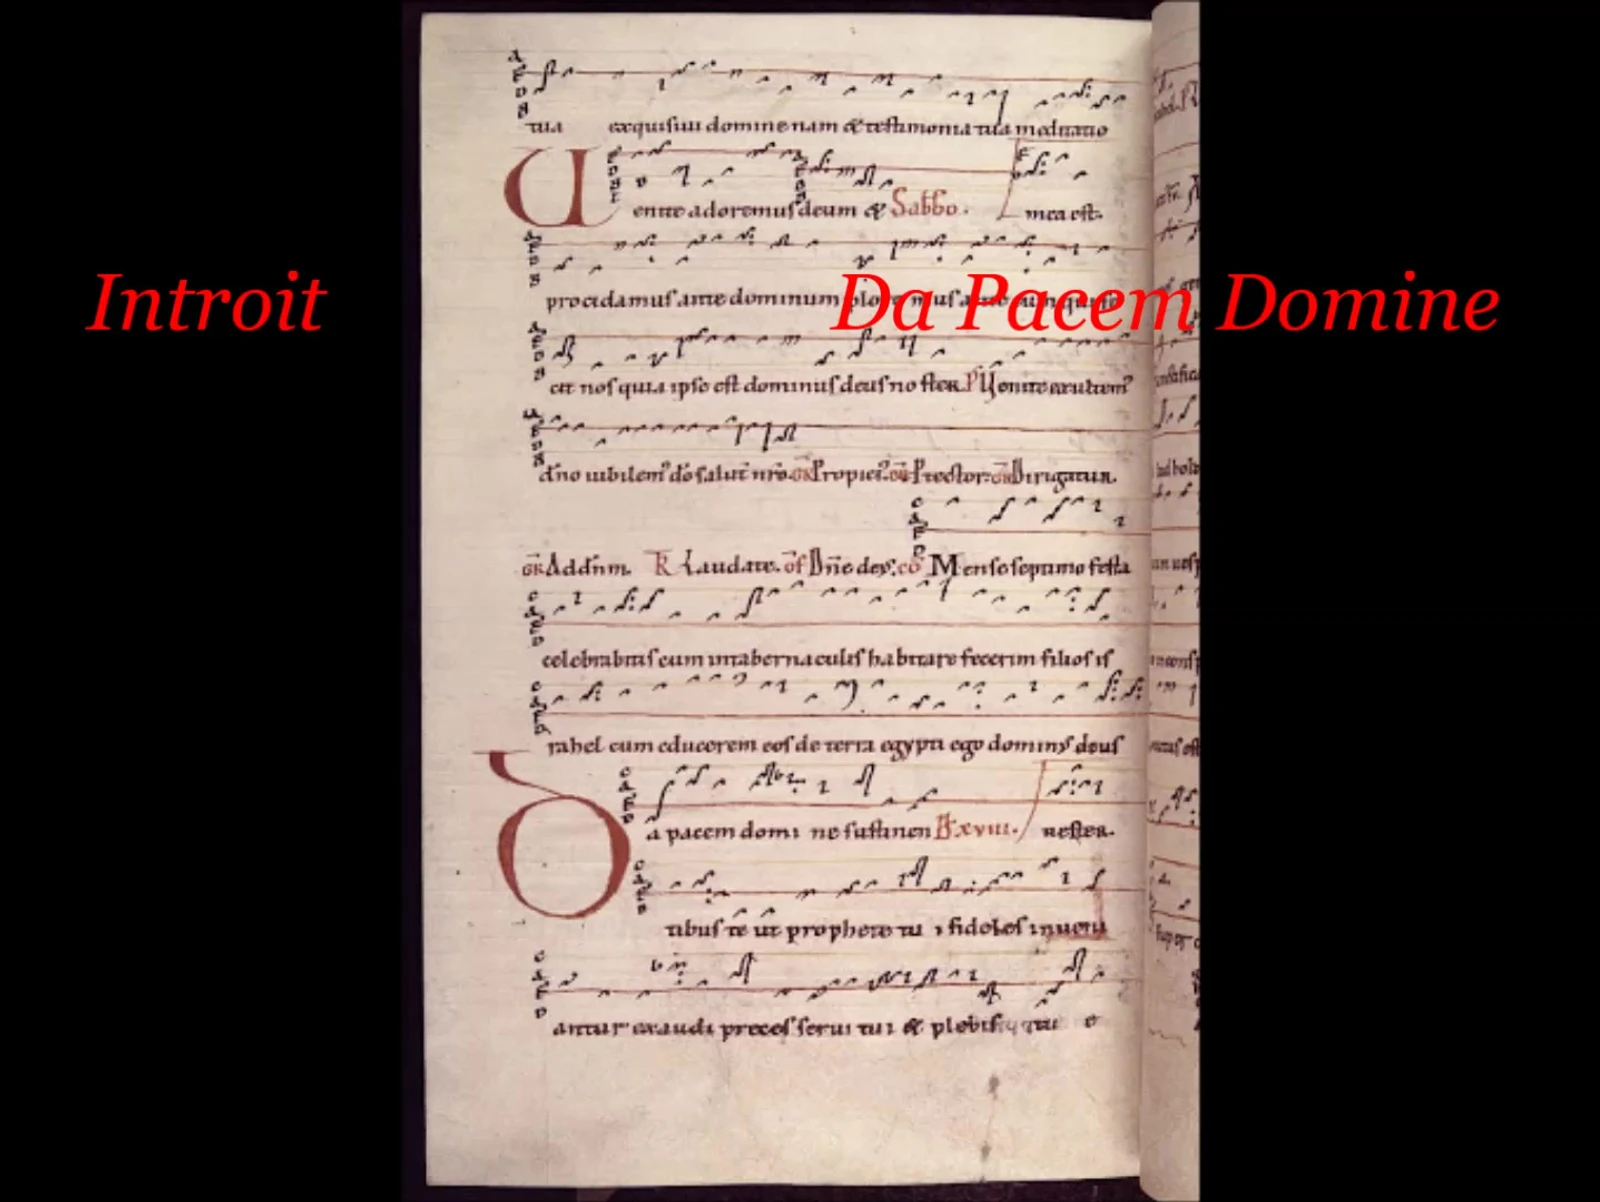 Introit
Da Pacem Domine
tua exquisiui domine nam & testimonia tua meditatio
Uenite adoremus deum & Sabbo. mea est.
procidamus ante dominum
cit nos quia ipse est dominus deus noster Ps Uenite exultem
dno iubilem do salut nro. Propici. Protector. Dirigatur.
Laudate. of Dne ds. co Mense septimo festa
celebrabitis cum in tabernaculis habitare fecerim filios is
rahel cum educerem eos de terra egypti ego dominus deus
Da pacem domine sustinen D xviii. uester.
tibus te ut prophete tui fideles inueni
antur exaudi preces serui tui & plebis